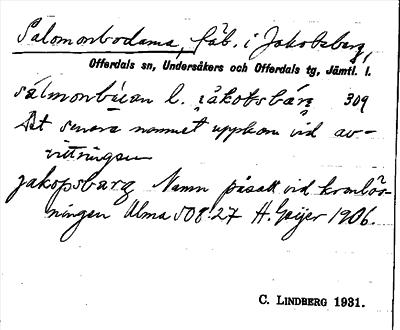 Salomonbodarna, fäb. i Jakobsberg,
Offerdals sn, Undersåkers och Offerdals tg, Jämtl. l.
salmonbúan l. jakobsbárg 309
Det senare namnet uppkom vid av-
vittringen
jakopsbarg Namn påsatt vid kronlös-
ningen Alma 508:27 H. Geijer 1906.
C. LINDBERG 1931.